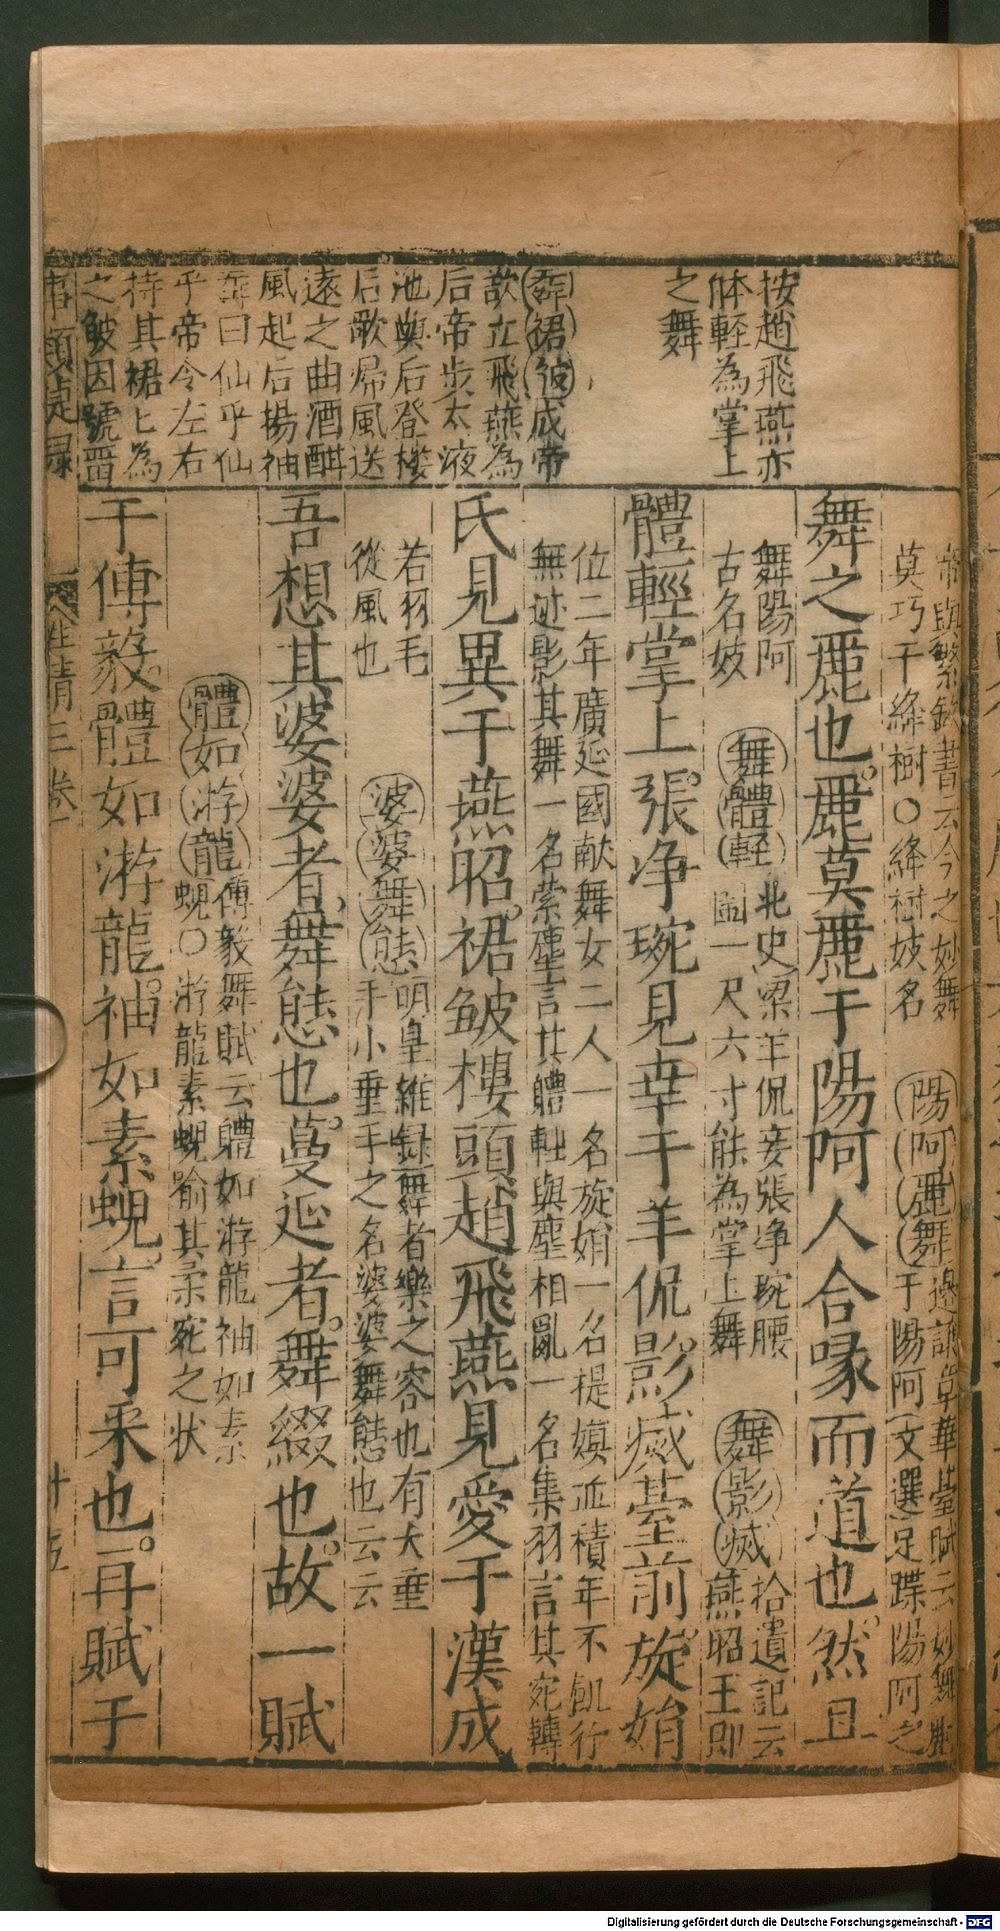 按趙飛燕亦
体輕為掌上
之舞
舞裙皱成帝
故立飛燕為
后帝步太液
池與后登樓
后歌歸風送
遠之曲酒酣
風起后揚袖
舞曰仙乎仙
乎帝令左右
持其裙匕為
之皱因號畱
帝與繁欽書云今之妙舞
莫巧于絳樹○絳樹妓名
陽阿麗舞邊讓章華臺賦云妙舞麗
于陽阿文選足蹀陽阿之
舞之麗也麗莫麗于陽阿人合喙而道也然且
舞陽阿
古名妓
舞體輕北史梁羊侃妾張净琬腰
圍一尺六寸能為掌上舞
舞影滅拾遺記云
燕昭王即
體輕掌上張净琬見幸于羊侃影滅䑓前旋娟
位二年廣延國献舞女二人一名旋娟一名提嫫並積年不飢行
無迹影其舞一名縈塵言其體軽與塵相亂一名集羽言其宛轉
氏見異于燕昭裙皱樓頭趙飛燕見愛于漢成
若羽毛
從風也
婆婆舞態明皇雜録舞者樂之容也有大垂
手小垂手之名婆婆舞態也云云
吾想其婆婆者舞態也蔓延者舞綴也故一賦
體如游龍傅毅舞賦云體如游龍袖如素
蜺○游龍素蜺喻其柔宛之状
于傅毅體如游龍袖如素蜺言可釆也再賦于
事類捷録
人性情三卷
十五
Digitalisierung gefördert durch die Deutsche Forschungsgemeinschaft - DFG